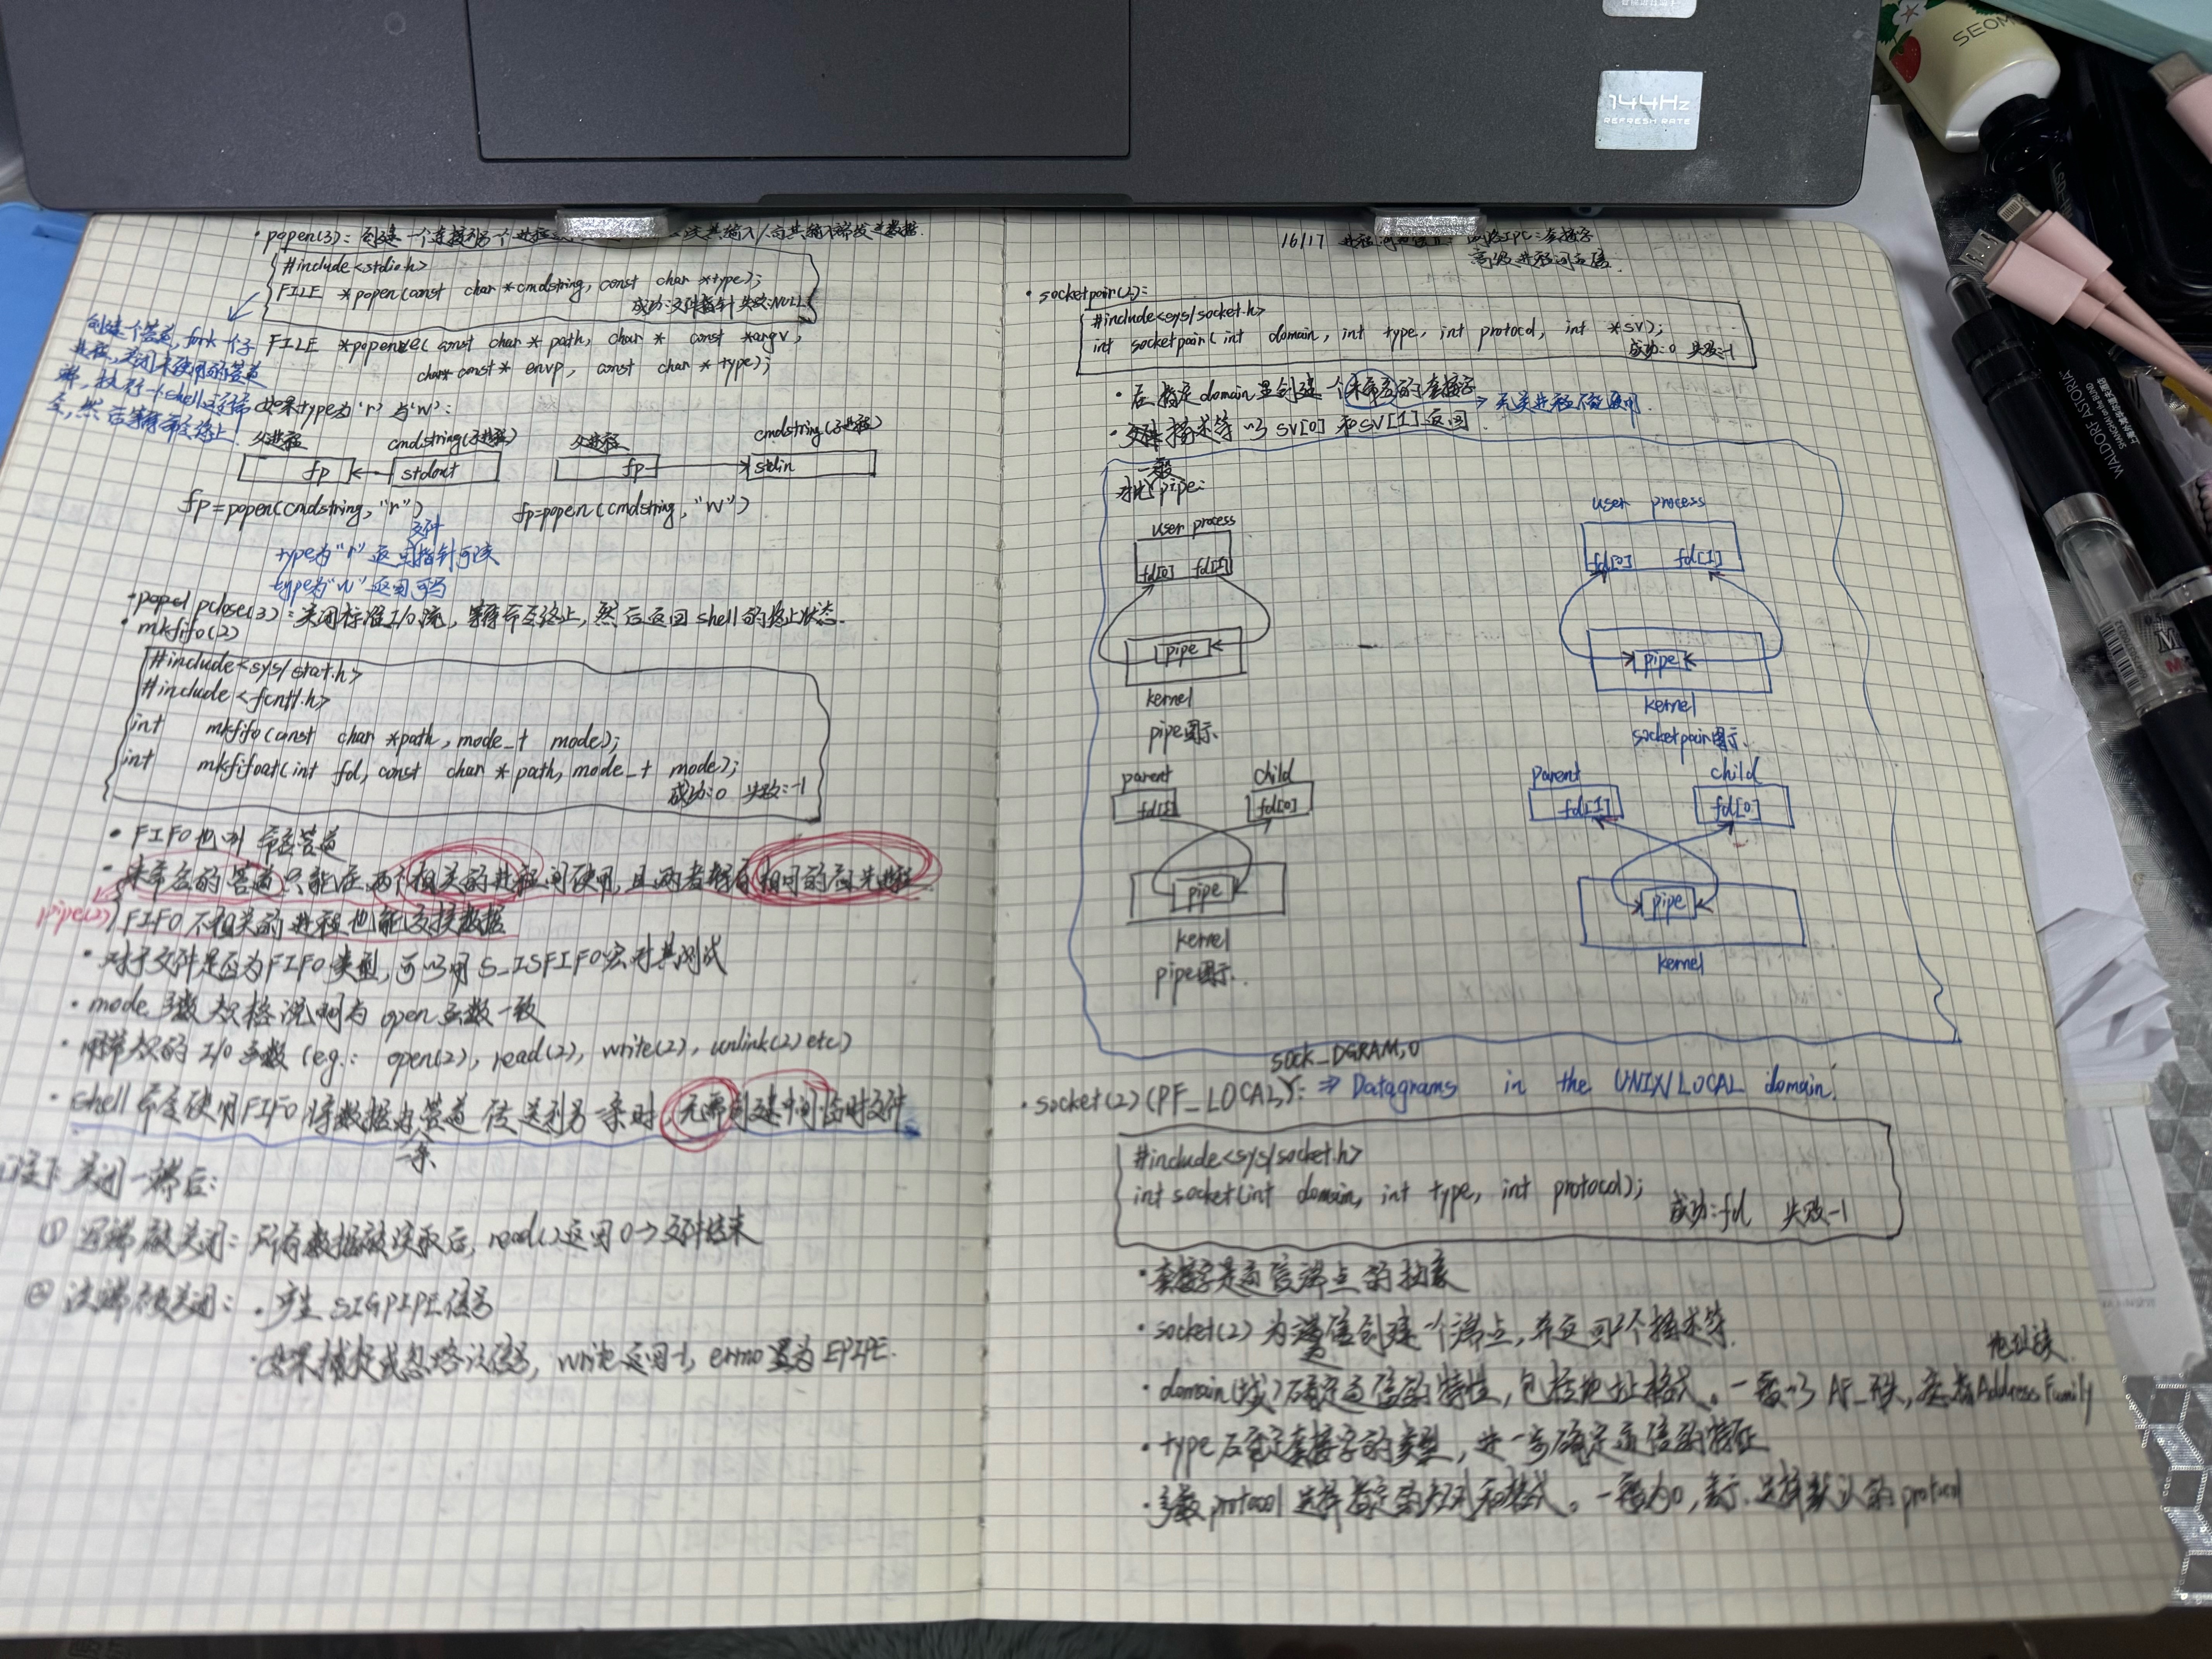 144Hz
REFRESH RATE
SEOM
WALDORF ASTORIA
SHANGHAI ON THE BUND
· popen(3): 创建一个连接到另一个进程
#include<stdio.h>
FILE *popen(const char *cmdstring, const char *type);
成功:文件指针 失败:NULL
创建一个管道, fork一个子
进程, 关闭未使用的管道
端, 执行一个shell运行命
令, 然后等待命令终止.
FILE *popenve(const char *path, char * const *argv,
char* const* envp, const char *type);
如果type为'r'与'w':
父进程 cmdstring(子进程) 父进程 cmdstring(子进程)
fp stdout fp stdin
fp=popen(cmdstring,"r") fp=popen(cmdstring,"w")
文件
type为"r"返回指针可读
type为"w"返回可写
pclose(3): 关闭标准I/O流, 等待命令终止, 然后返回shell的终止状态.
· mkfifo(2)
#include<sys/stat.h>
#include<fcntl.h>
int mkfifo(const char *path, mode_t mode);
int mkfifoat(int fd, const char *path, mode_t mode);
成功:0 失败:-1
· FIFO也叫命名管道
· 未命名的管道只能在两个相关的进程间使用, 且两者都有相同的祖先进程.
pipe(2) FIFO不相关的进程也能交换数据
· 对于文件是否为FIFO类型, 可以用S_ISFIFO宏对其测试
· mode参数规格说明与open函数一致
· I/O函数(eg.: open(2), read(2), write(2), unlink(2) etc)
· shell命令使用FIFO将数据由管道传送到另一条时, 无需创建中间临时文件
一条
关闭一端后:
① 写端被关闭: 所有数据被读取后, read()返回0→文件结束
② 读端被关闭: · 产生SIGPIPE信号
· 如果捕捉或忽略该信号, write返回-1, errno置为EPIPE.
16/17 进程间通信II: 网络IPC:套接字
高级进程间通信.
· socketpair(2):
#include<sys/socket.h>
int socketpair(int domain, int type, int protocol, int *sv);
成功:0 失败:-1
· 在指定domain里创建一个未命名的套接字 → 无关进程不能使用
· 文件描述符以sv[0]和sv[1]返回.
一般
对比pipe:
user process user process
fd[0] fd[1] fd[0] fd[1]
pipe pipe
kernel kernel
pipe图示. socketpair图示.
parent child parent child
fd[1] fd[0] fd[1] fd[0]
pipe pipe
kernel kernel
pipe图示.
SOCK_DGRAM,0
· socket(2)(PF_LOCAL): ⇒ Datagrams in the UNIX/LOCAL domain.
#include<sys/socket.h>
int socket(int domain, int type, int protocol);
成功:fd 失败-1
· 套接字是通信端点的抽象
· socket(2)为通信创建一个端点, 并返回一个描述符.
地址族
· domain(域)确定通信的特性, 包括地址格式。一般以AF_开头, 意指Address Family
· type确定套接字的类型, 进一步确定通信的特征
· 参数protocol选择指定的规则和格式。一般为0, 表示选择默认的protocol